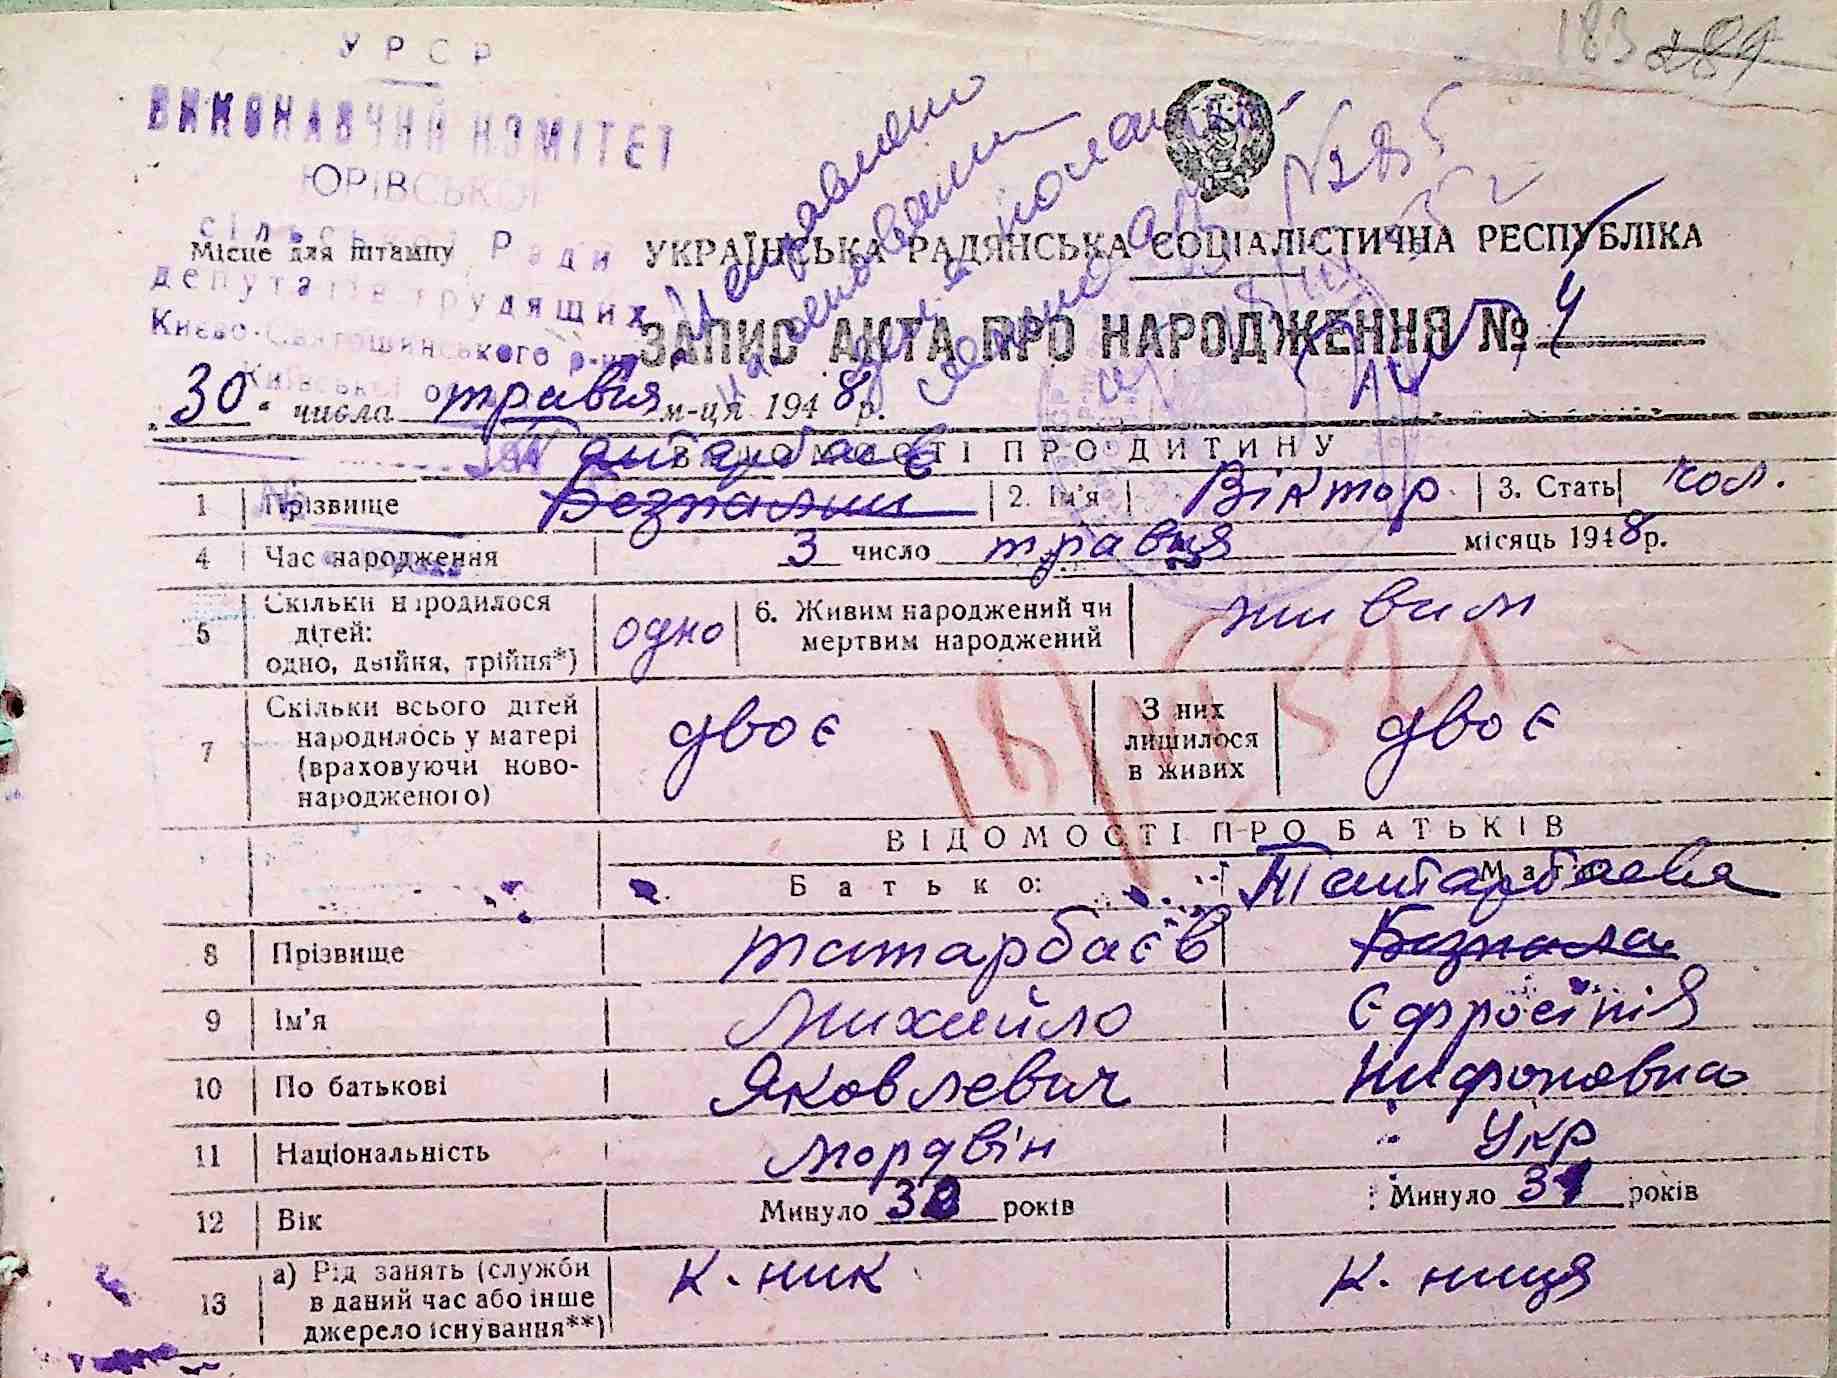 183 284
УРСР
ВИКОНАВЧИЙ КОМІТЕТ
ЮРІВСЬКОЇ
сільської Ради
депутатів трудящих
Києво-Святошинського р-ну
Київської
Місце для штампу
Исправлено
на основании
№285
УКРАЇНСЬКА РАДЯНСЬКА СОЦІАЛІСТИЧНА РЕСПУБЛІКА
ЗАПИС АКТА ПРО НАРОДЖЕННЯ № 4
„30" числа травня м-ця 1948 р.
ВІДОМОСТІ ПРО ДИТИНУ
Татарбаєв
1 Прізвище Безпалий 2. Ім'я Віктор 3. Стать чол.
4 Час народження 3 число травця місяць 1948 р.
5 Скільки народилося дітей: одно, двійня, трійня*) одно 6. Живим народжений чи мертвим народжений живим
7 Скільки всього дітей народилось у матері (враховуючи новонародженого) двоє З них лишилося в живих двоє
ВІДОМОСТІ ПРО БАТЬКІВ
Батько: Мати
Татарбаева
8 Прізвище Татарбаєв Безпала
9 Ім'я Михайло Єфросінія
10 По батькові Яковлевич Нифоновна
11 Національність мордвін Укр
12 Вік Минуло років Минуло 31 років
13 а) Рід занять (служби в даний час або інше джерело існування**) к-ник к-ниця